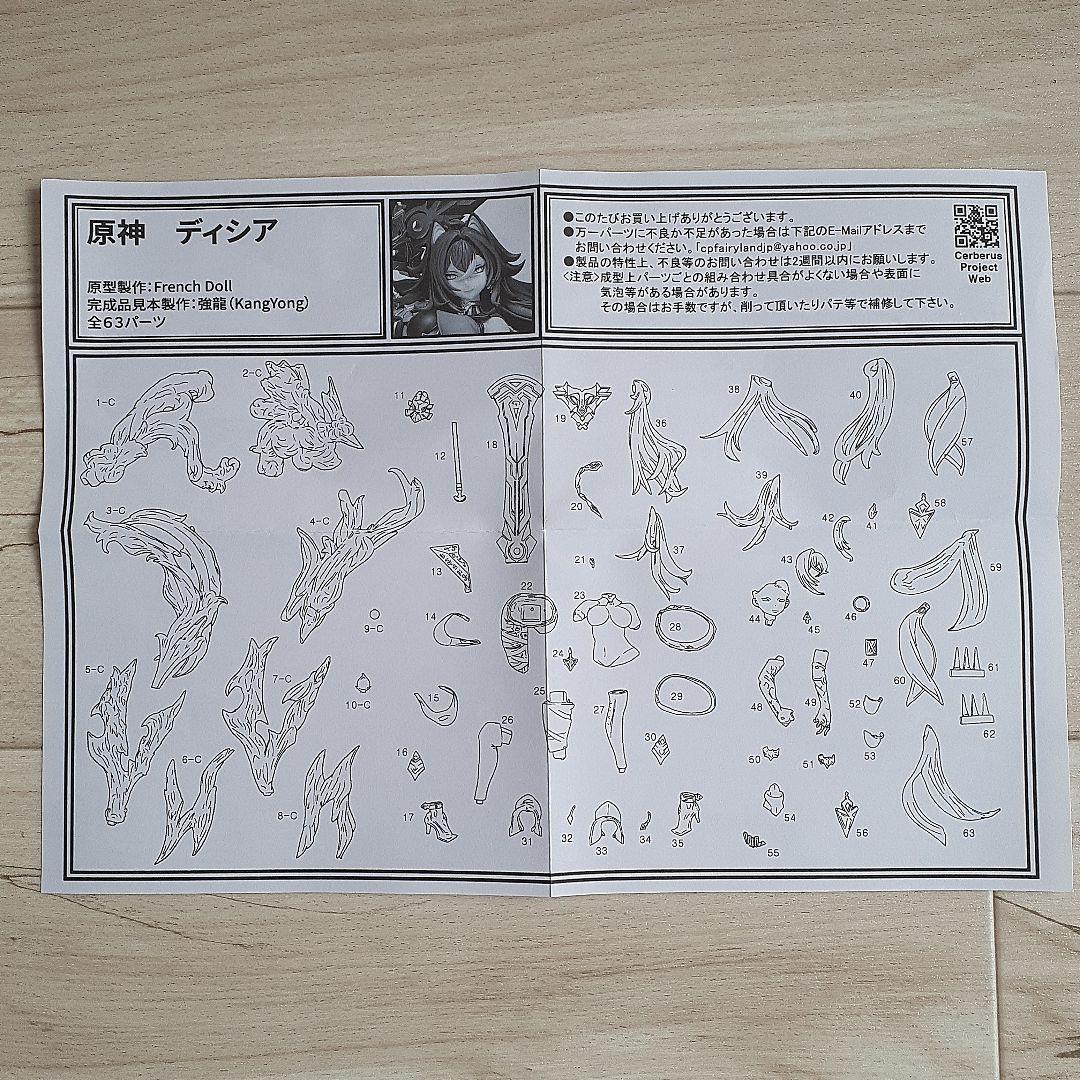 原神 ディシア
原型製作：French Doll
完成品見本製作：強龍（KangYong）
全63パーツ
●このたびお買い上げありがとうございます。
●万一パーツに不良か不足があった場合は下記のE-Mailアドレスまで
お問い合わせください。「cpfairylandjp@yahoo.co.jp」
●製品の特性上、不良等のお問い合わせは2週間以内にお願いします。
〈注意〉成型上パーツごとの組み合わせ具合がよくない場合や表面に
気泡等がある場合があります。
その場合はお手数ですが、削って頂いたりパテ等で補修して下さい。
Cerberus
Project
Web
1-C
2-C
3-C
4-C
5-C
6-C
7-C
8-C
9-C
10-C
11
12
13
14
15
16
17
18
19
20
21
22
23
24
25
26
27
28
29
30
31
32
33
34
35
36
37
38
39
40
41
42
43
44
45
46
47
48
49
50
51
52
53
54
55
56
57
58
59
60
61
62
63